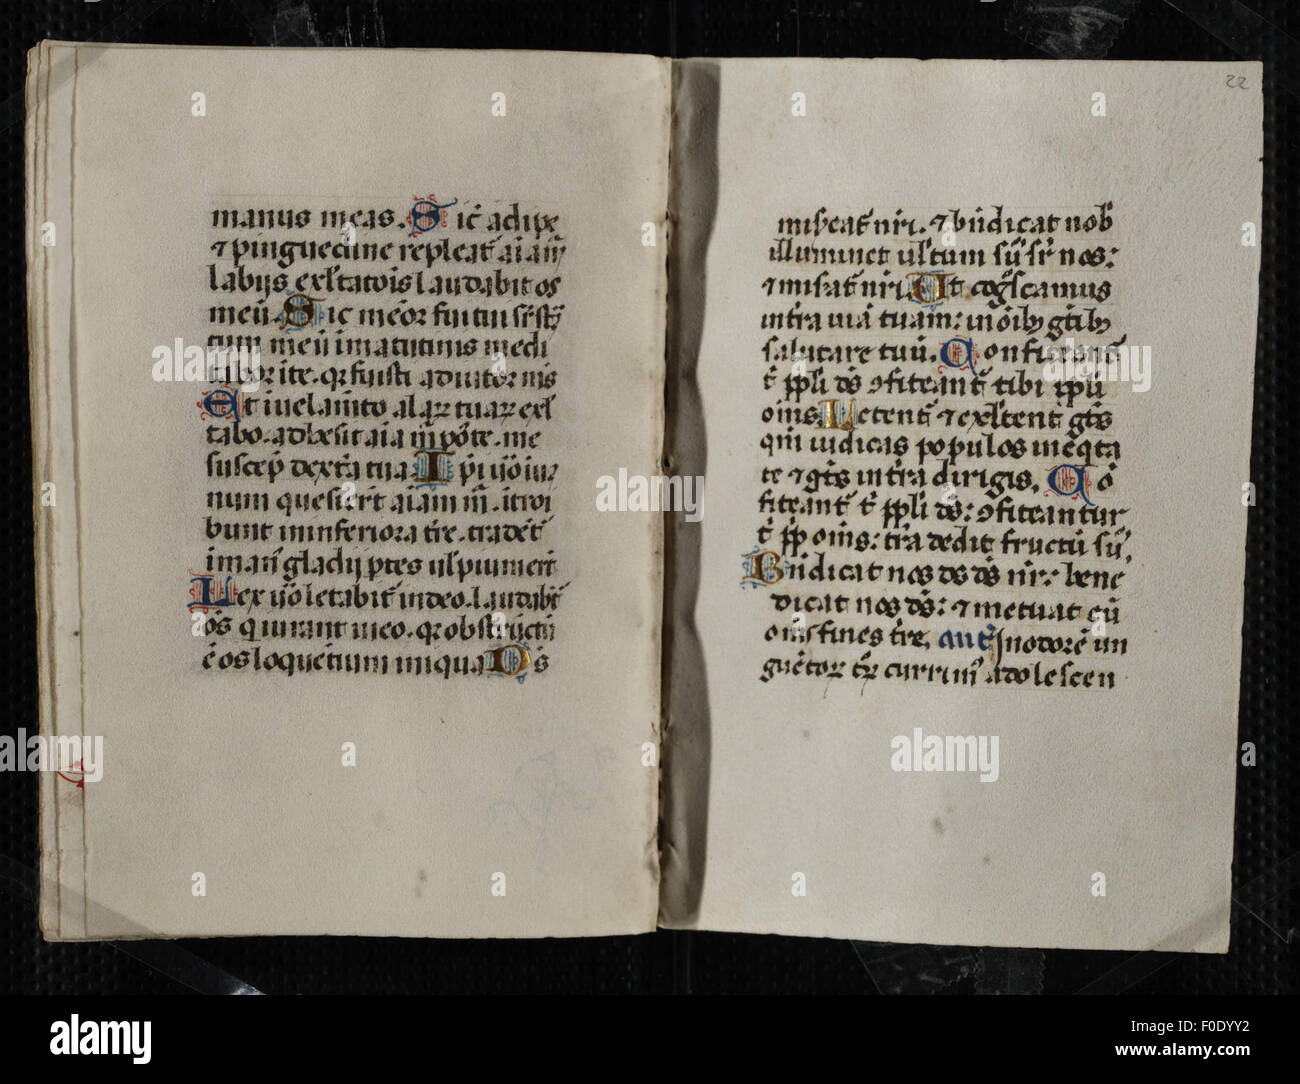 22
manus meas. Sic̄ adipe
⁊ pinguedine repleat̄ aīa m̄
labijs exl̄tatōis laudabit os
meū. Sic meōr fui tui sr̄ st̄
tum meū i matutinis medi
tabor i te. qr fuisti adiutor m̄s
Et i uelamīto alaꝝ tuaꝝ exl̄
tabo. adhesit aīa m̄ pōt te. me
suscep̄ dext̄a tua Ip̄i uō i ua
num quesiert̄ aīam m̄. itroi
bunt in inferiora tr̄e. tradēt̄
i man̄ gladij ptes ulpiū ert̄
Rex uō letabit̄ in deo. laudabt̄
oēs q iurant in eo. qr obstructū
ē os loquētium iniqua Ds̄
misereat̄ nr̄i. ⁊ bn̄dicat nob̄
illuminet ul̄tum sū sr̄ nos:
⁊ misat̄ nr̄i. Ut cog̃scamus
in tr̄a uiā tuam: in oībꝫ gēt̄ibꝫ
salutare tuū. Confiteant̄
t̄ ppl̄i ds̄ ꝯfiteant̄ tibi ppl̄i
oms̄ Letent̄ ⁊ exl̄tent gēt̄s
qm̄ iudicas populos in eq̄ta
te ⁊ gēt̄s in tr̄a dirigis. Cō
fiteant̄ t̄ ppl̄i ds̄: ꝯfiteantur
t̄ ppl̄i oms̄: tr̄a dedit fructū sū.
Bn̄dicat nos ds̄ ds̄ nr̄: bene
dicat nos ds̄: ⁊ metuat eū
oms̄ fines tr̄e. ant̄ In odorē un
guētoꝝ t̄oꝝ currim̄ adolescen
alamy
alamy
Image ID: F0DYY2
www.alamy.com